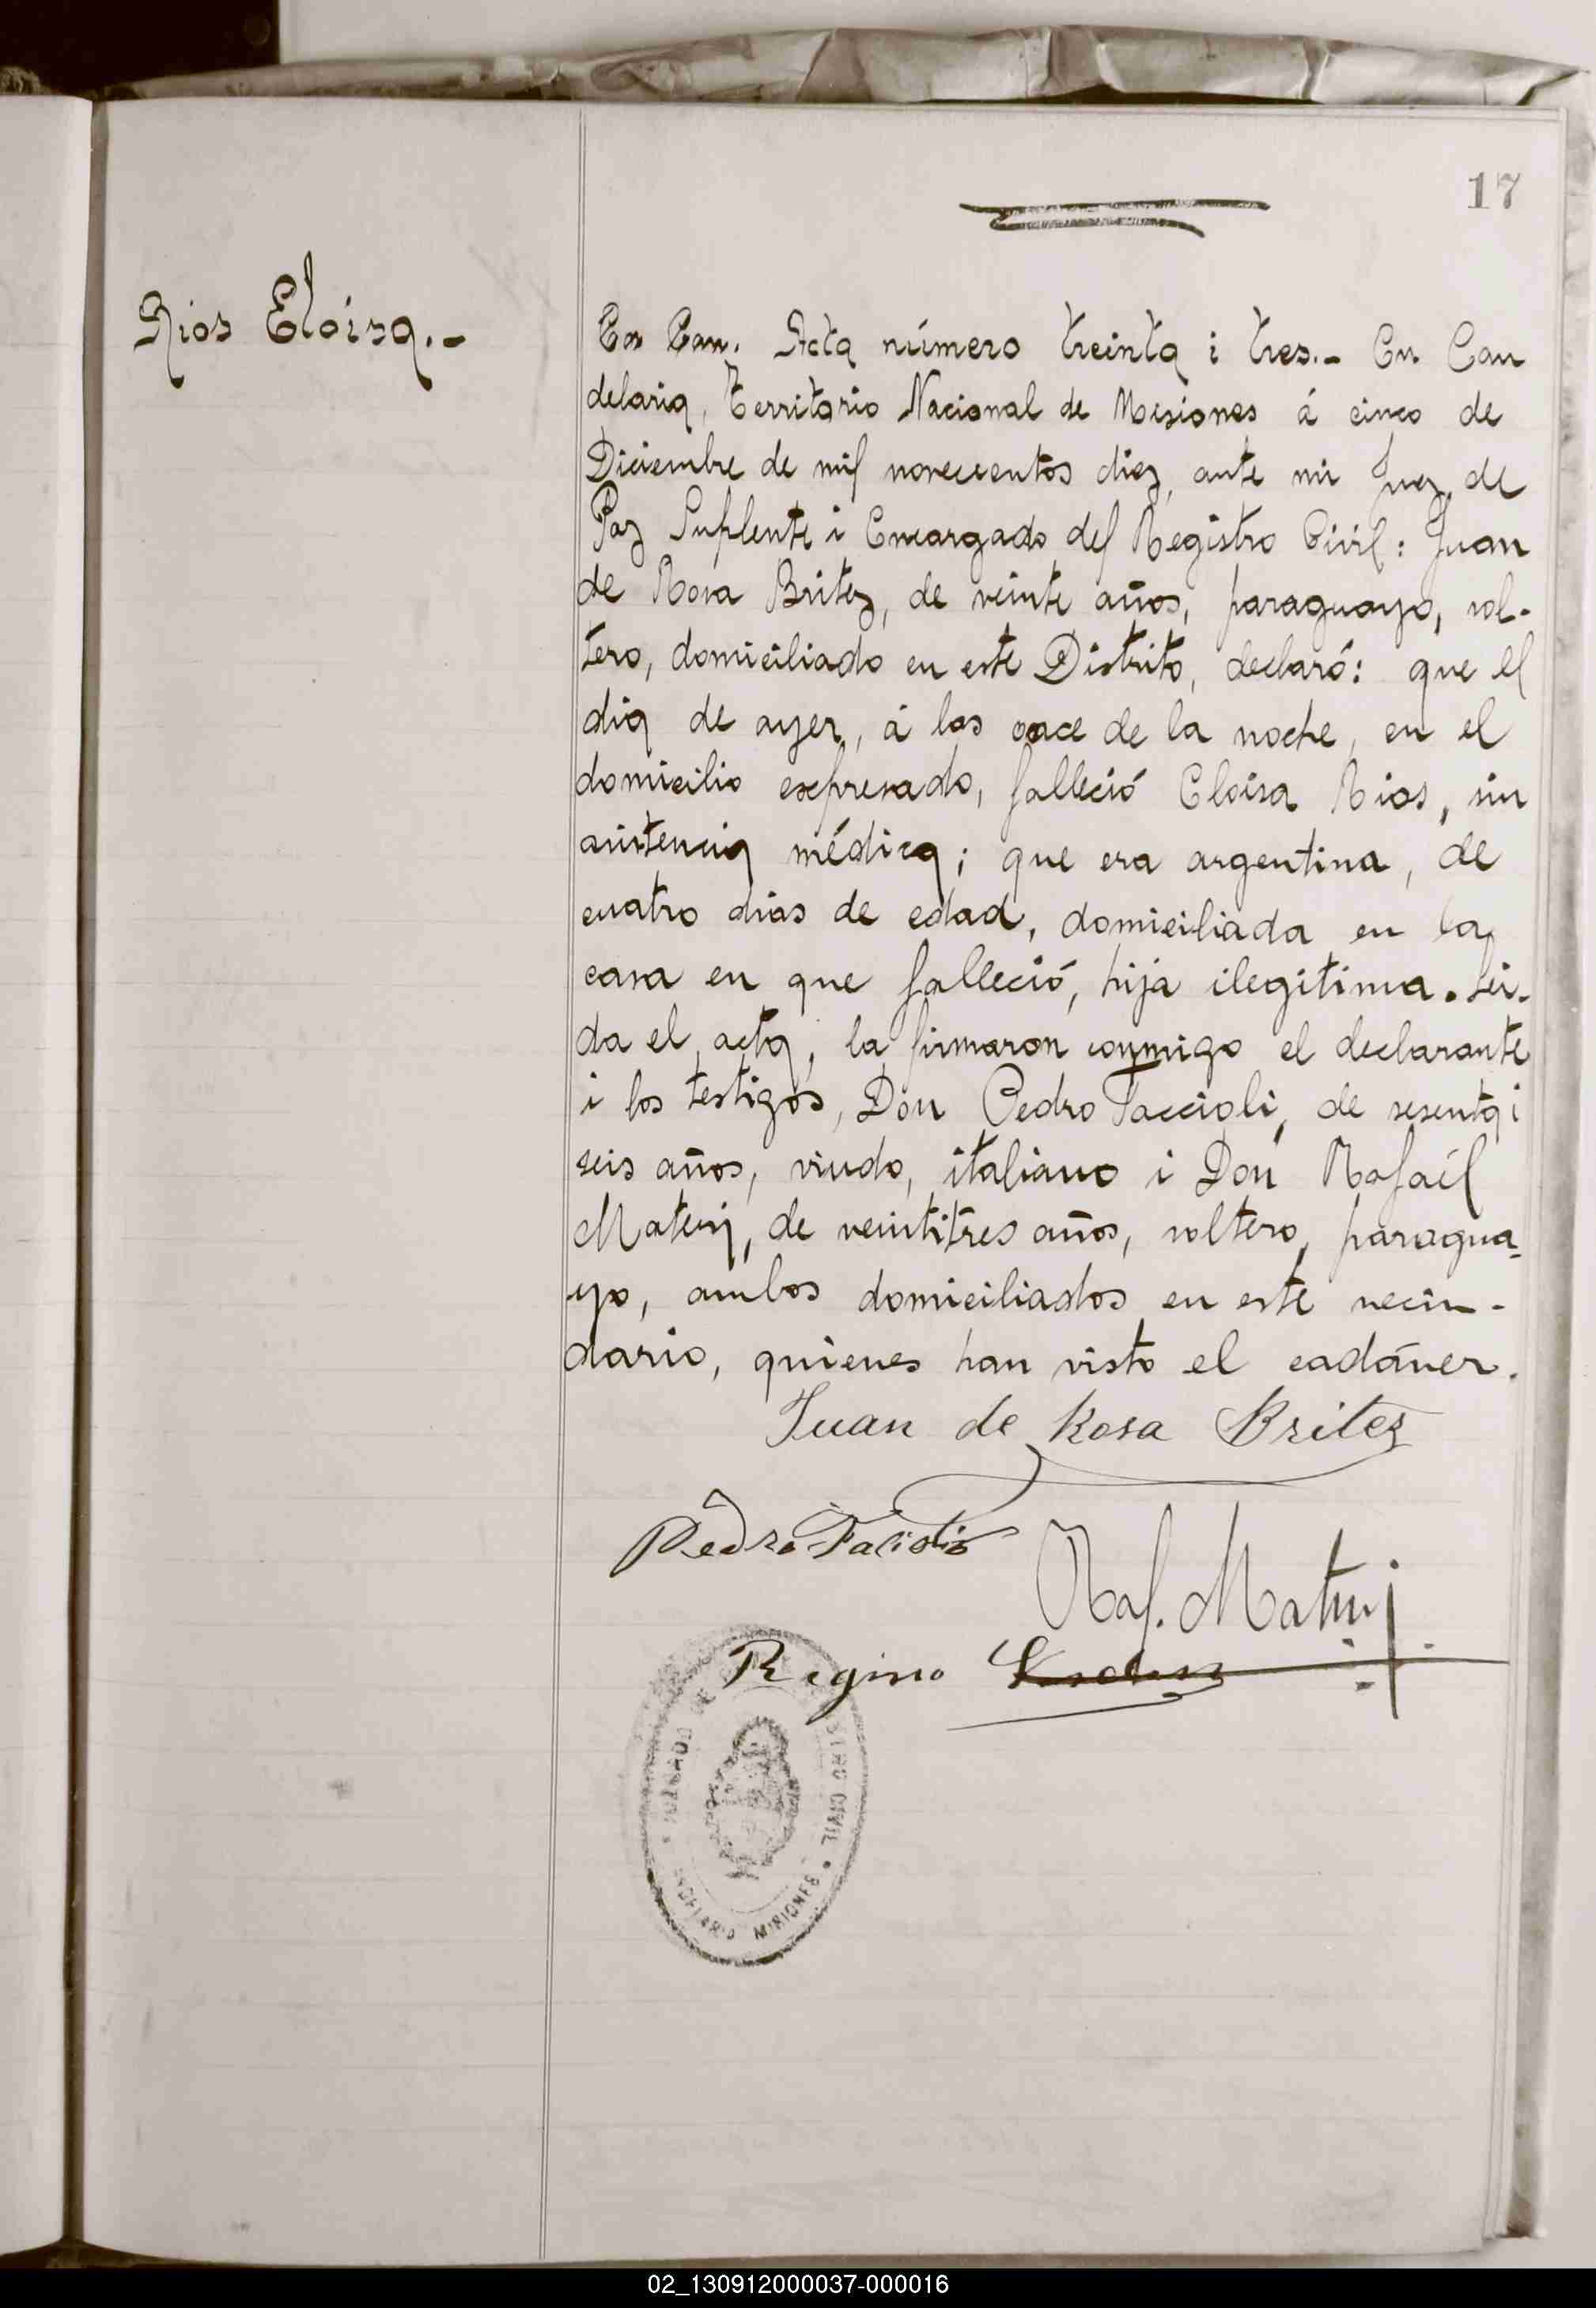 17
Rios Eloisa.-
En Can. Acta número treinta i tres.- En Can
delaria, Territorio Nacional de Misiones á cinco de
Diciembre de mil novecientos diez, ante mi Juez de
Paz Suplente i Encargado del Registro Civil: Juan
de Rosa Britez, de veinte años, paraguayo, sol-
tero, domiciliado en este Distrito, declaró: que el
dia de ayer, á las once de la noche, en el
domicilio expresado, falleció Eloisa Rios, sin
asistencia médica; que era argentina, de
cuatro dias de edad, domiciliada en la
casa en que falleció, hija ilegitima. Lei-
da el acta, la firmaron conmigo el declarante
i los testigos, Don Pedro Faccioli, de sesenta i
seis años, viudo, italiano i Don Rafaél
Materi, de veintitres años, soltero, paragua-
yo, ambos domiciliados en este vecin-
dario, quienes han visto el cadáver.
Juan de Rosa Britez
Pedro
Raf. Materi
Regino
JUZGADO DE
REGISTRO CIVIL
CANDELARIA MISIONES
02_130912000037-000016